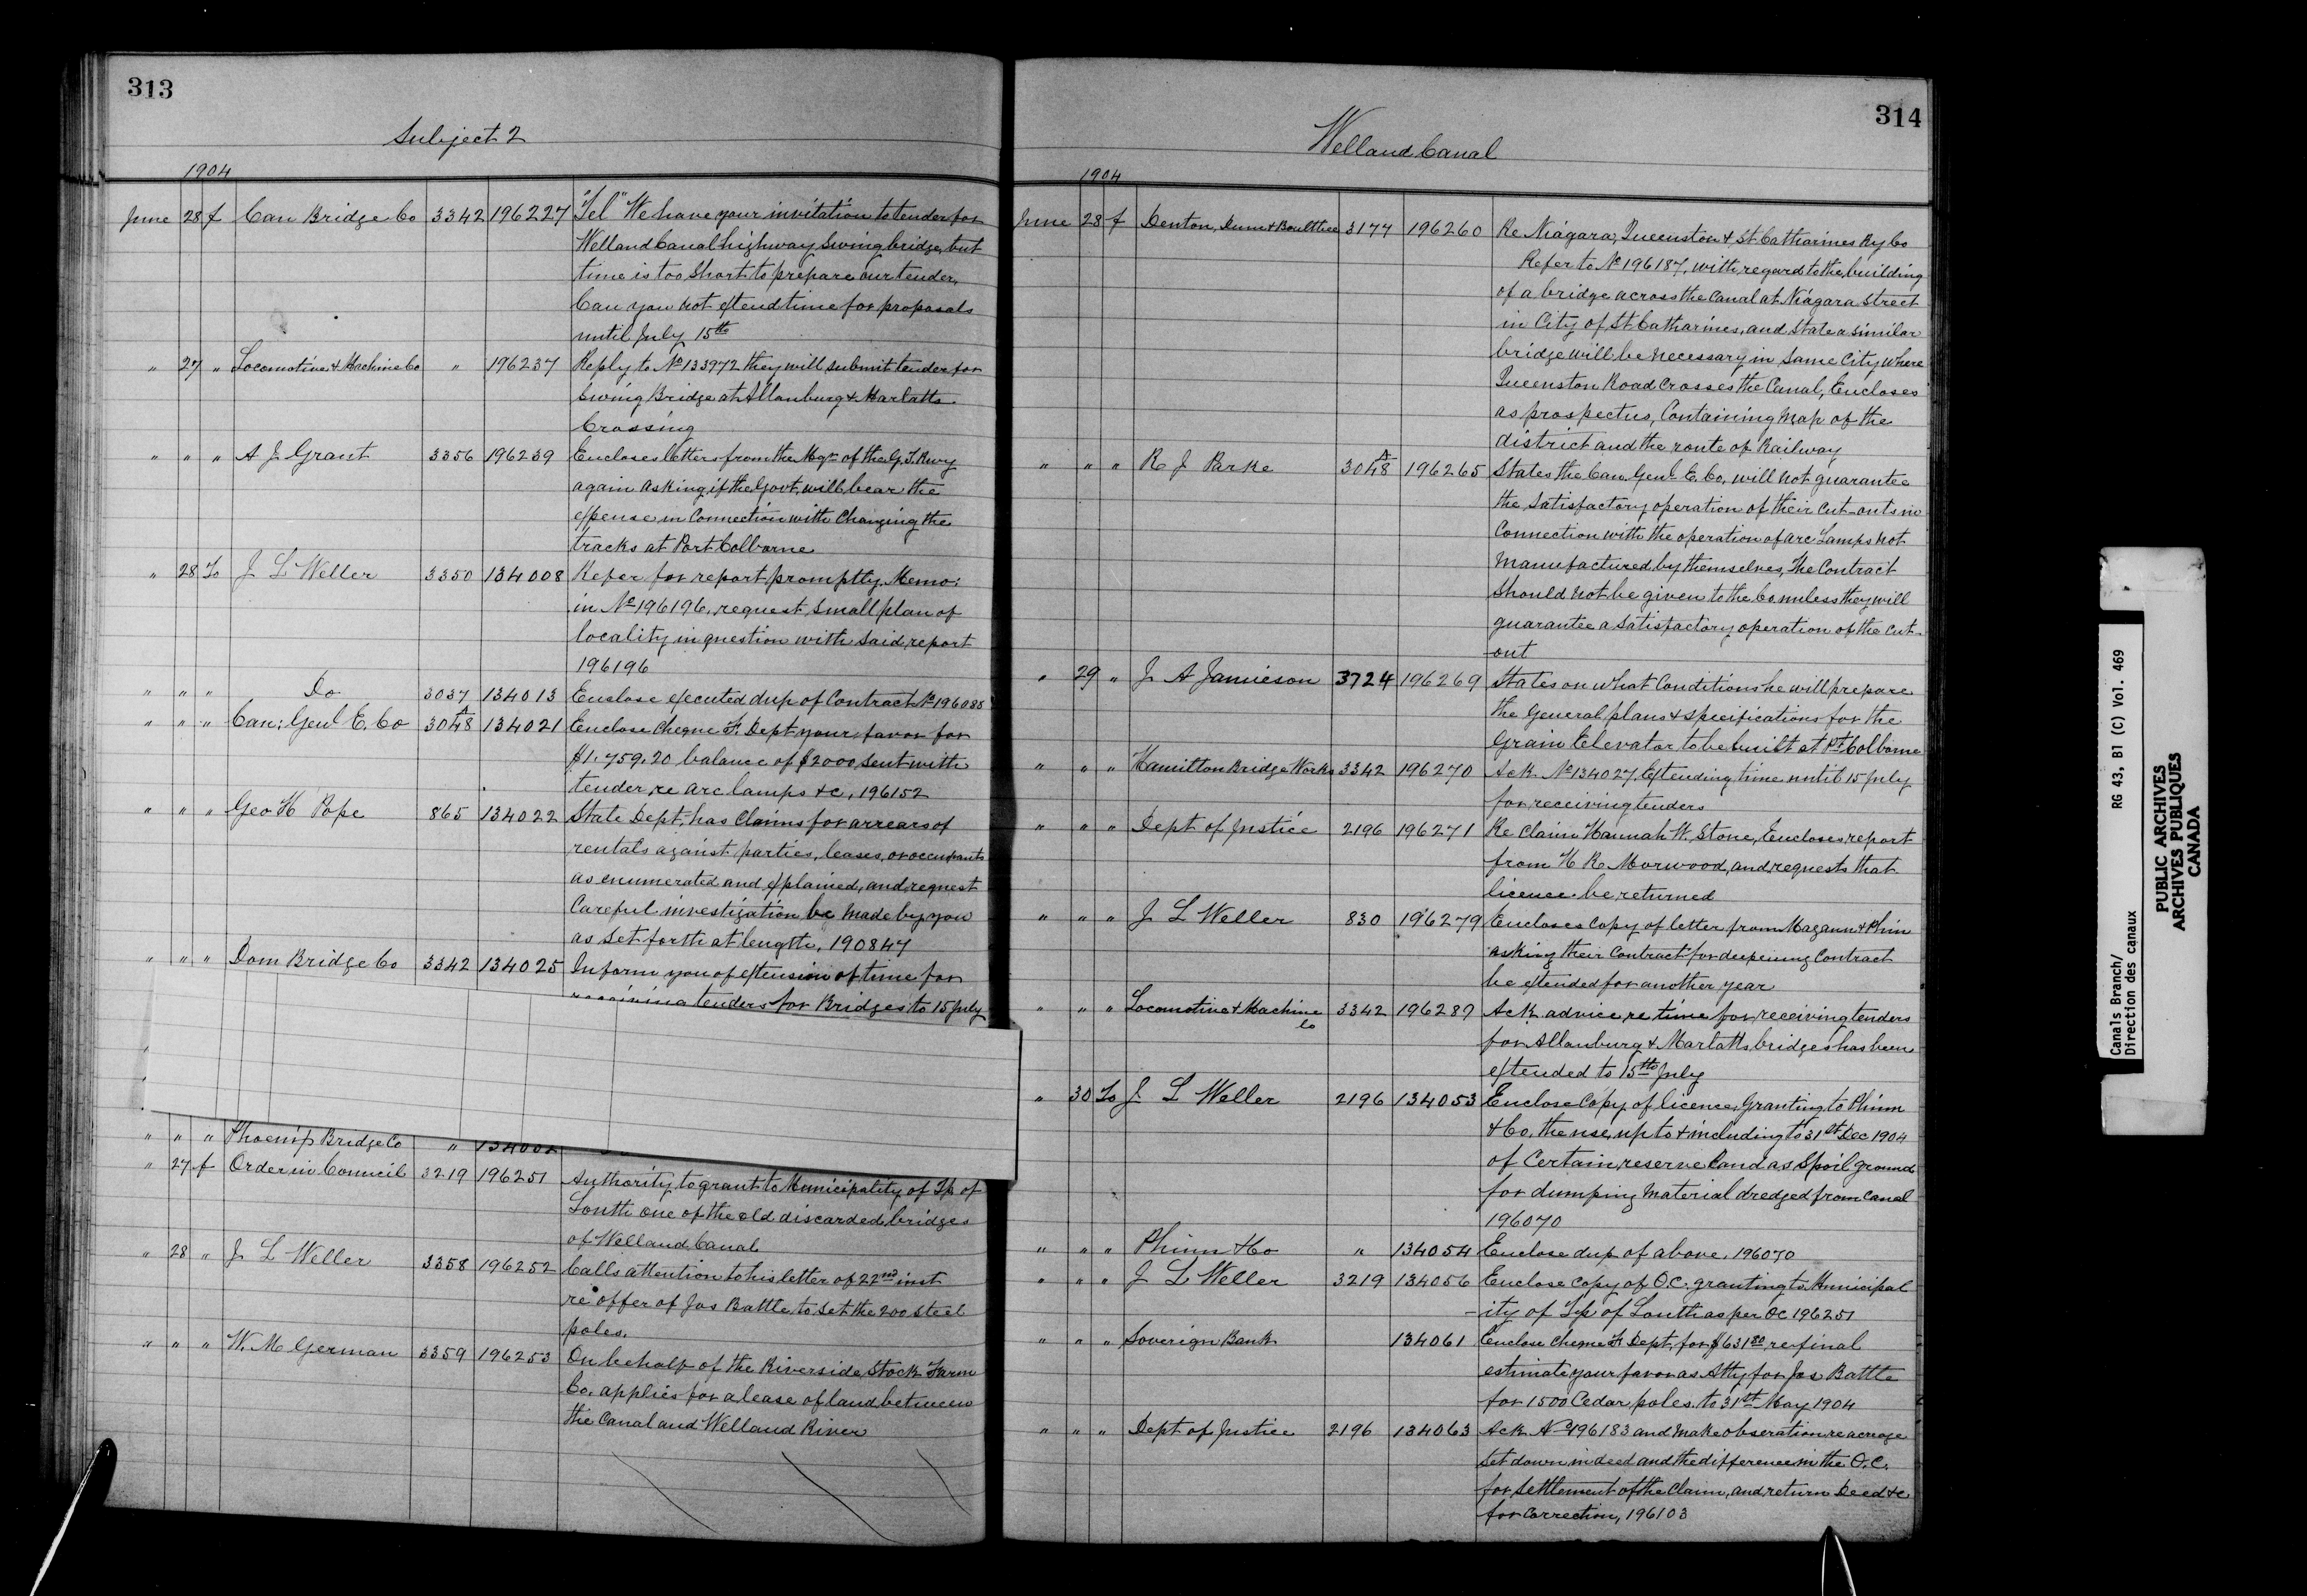 313
Subject 2
1904
June 28 f Can Bridge Co 3342 196227 "Tel" We have your invitation to tender for
Welland Canal highway swing bridge, but
time is too short to prepare our tender,
Can you not extend time for proposals
until July 15th
" 27 " Locomotive & Machine Co " 196237 Reply to No 133972 they will submit tender for
Swing Bridge at Allanburg & Marlatts
Crossing
" " " A J Grant 3356 196239 Encloses letters from the Mgr of the G.T. Rwy
again asking if the Govt. will bear the
expense in connection with changing the
tracks at Port Colborne
" 28 To J L Weller 3350 134008 Refer for report promptly Memo:
in No 196196, request small plan of
locality in question with said report
196196
" " " Do 3037 134013 Enclose executed dup of Contract No 196088
" " " Can: Genl E. Co 3048A 134021 Enclose cheque F. Dept your favor for
$1,759.20 balance of $2000 sent with
tender re arc lamps &c, 196152
" " " Geo H Pope 865 134022 State Dept. has Claims for arrears of
rentals against parties, leases, or occupants
as enumerated and explained, and request
Careful investigation be made by you
as set forth at length, 190847
" " " Dom Bridge Co 3342 134025 Inform you of extension of time for
receiving tenders for Bridges to 15 July
" " " Phoenix Bridge Co "
" 27 f Order in Council 3219 196251 Authority to grant to Municipality of Tp of
Louth one of the old discarded bridges
of Welland Canal
" 28 " J L Weller 3358 196252 Calls attention to his letter of 22nd inst
re offer of Jas Battle to set the 200 steel
poles.
" " " W. M German 3359 196253 On behalf of the Riverside Stock Farm
Co. applies for a lease of land between
the Canal and Welland River
314
Welland Canal
1904
June 28 f Denton, Dunn & Boultbee 3177 196260 Re Niagara, Queenston & St Catharines Ry Co
Refer to No 196187, with regard to the building
of a bridge across the Canal at Niagara Street
in City of St Catharines, and state a similar
bridge will be necessary in same City where
Queenston Road crosses the Canal, Encloses
as prospectus, Containing map of the
district and the route of Railway
" " " R J Parke 3048A 196265 States the Can. Genl. E. Co. will not guarantee
the satisfactory operation of their cut-outs in
Connection with the operation of arc lamps not
manufactured by themselves, The Contract
should not be given to the Co unless they will
guarantee a satisfactory operation of the cut-
-out
" 29 " J A Jamieson 3724 196269 States on what Conditions he will prepare
the general plans & specifications for the
Grain Elevator to be built at Pt Colborne
" " " Hamilton Bridge Works 3342 196270 Ack No 134027 Extending time until 15 July
for receiving tenders
" " " Dept of Justice 2196 196271 Re claim Hannah W. Stone, Encloses report
from H R Morwood, and requests that
licence be returned
" " " J L Weller 830 196279 Encloses copy of letter from Magann & Phin
asking their Contract for deepening Contract
be extended for another year
" " " Locomotive & Machine Co 3342 196287 Ack advice re time for receiving tenders
for Allanburg & Marlatts bridges has been
extended to 15th July
" 30 To J. L Weller 2196 134053 Enclose Copy of licence, Granting to Phinn
& Co. the use, up to & including to 31st Dec 1904
of Certain reserve land as Spoil ground
for dumping material dredged from Canal
196070
" " " Phinn & Co " 134054 Enclose dup of above. 196070
" " " J L Weller 3219 134056 Enclose copy of O.C. granting to Municipal
-ity of Tp of Louth as per OC 196251
" " " Soverign Bank 134061 Enclose cheque F. Dept, for $631 80 re final
estimate your favor as Atty for Jas Battle
for 1500 Cedar poles to 31st May 1904
" " " Dept of Justice 2196 134063 Ack No 196183 and make obseration re acreage
set down in deed and the difference in the O.C.
for settlement of the Claim, and return Deed &c
for correction, 196103
Canals Branch/
Direction des canaux
RG 43, B1 (C) Vol. 469
PUBLIC ARCHIVES
ARCHIVES PUBLIQUES
CANADA